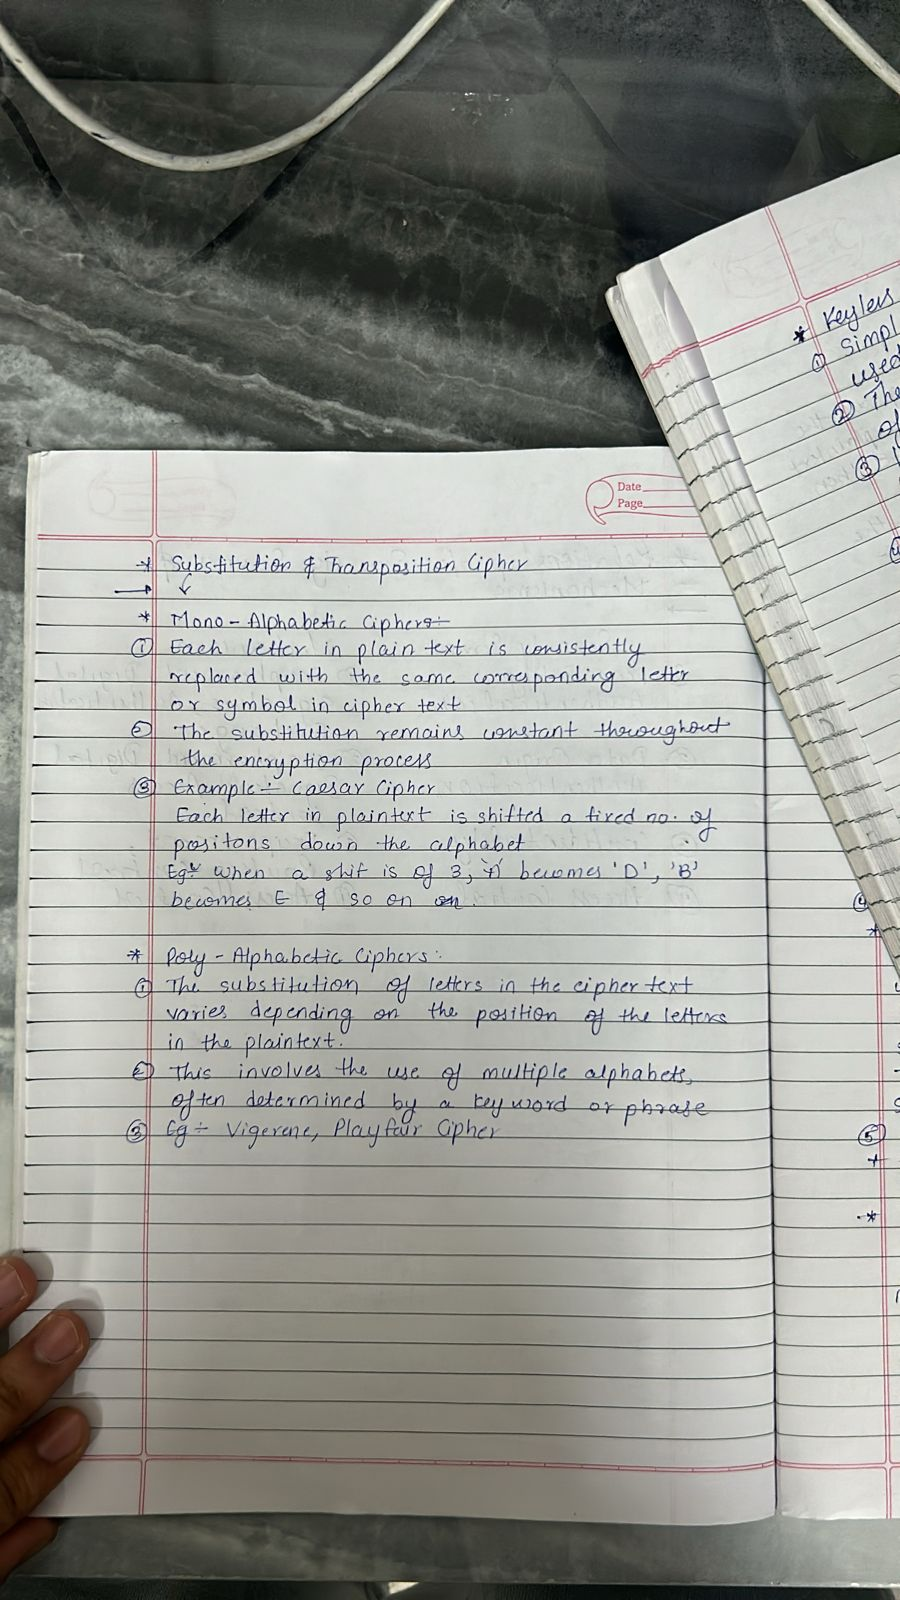 Date
Page
* Substitution & Transposition Cipher
* Mono - Alphabetic Ciphers :-
① Each letter in plain text is consistently
replaced with the same corresponding letter
or symbol in cipher text
② The substitution remains constant throughout
the encryption process
③ Example :- Caesar Cipher
Each letter in plaintext is shifted a fixed no. of
positons down the alphabet
Eg: when a shif is of 3, 'A' becomes 'D', 'B'
becomes E & so on on.
* Poly - Alphabetic Ciphers :
① The substitution of letters in the cipher text
varies depending on the position of the letters
in the plaintext.
② This involves the use of multiple alphabets,
often determined by a key word or phrase
③ Eg :- Vigerene, Playfair Cipher
* Keyless
① Simpl
used
② The
of
③
④
*
⑤
*